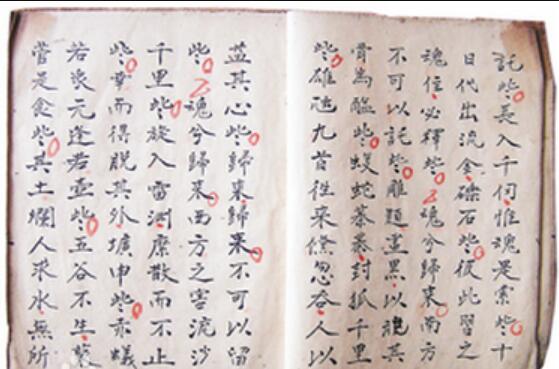 託些長人千仞惟魂是索些十
日代出流金礫石些彼此習之
魂往必釋些魂兮歸來南方
不可以託些雕題黑以其
骨為醢些蝮蛇蓁蓁封狐千里
些雄虺九首往來儵忽吞人以
益其心些歸來歸來不可以留
些魂兮歸來西方之害流沙
千里些旋入雷淵縻散而不止
些幸而得脫其外壙申些赤蟻
若象元逢若壺些五谷不生藂
菅是食些其土爛人求水無所